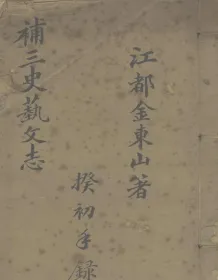 江都金東山著
補三史藝文志
揆初手録